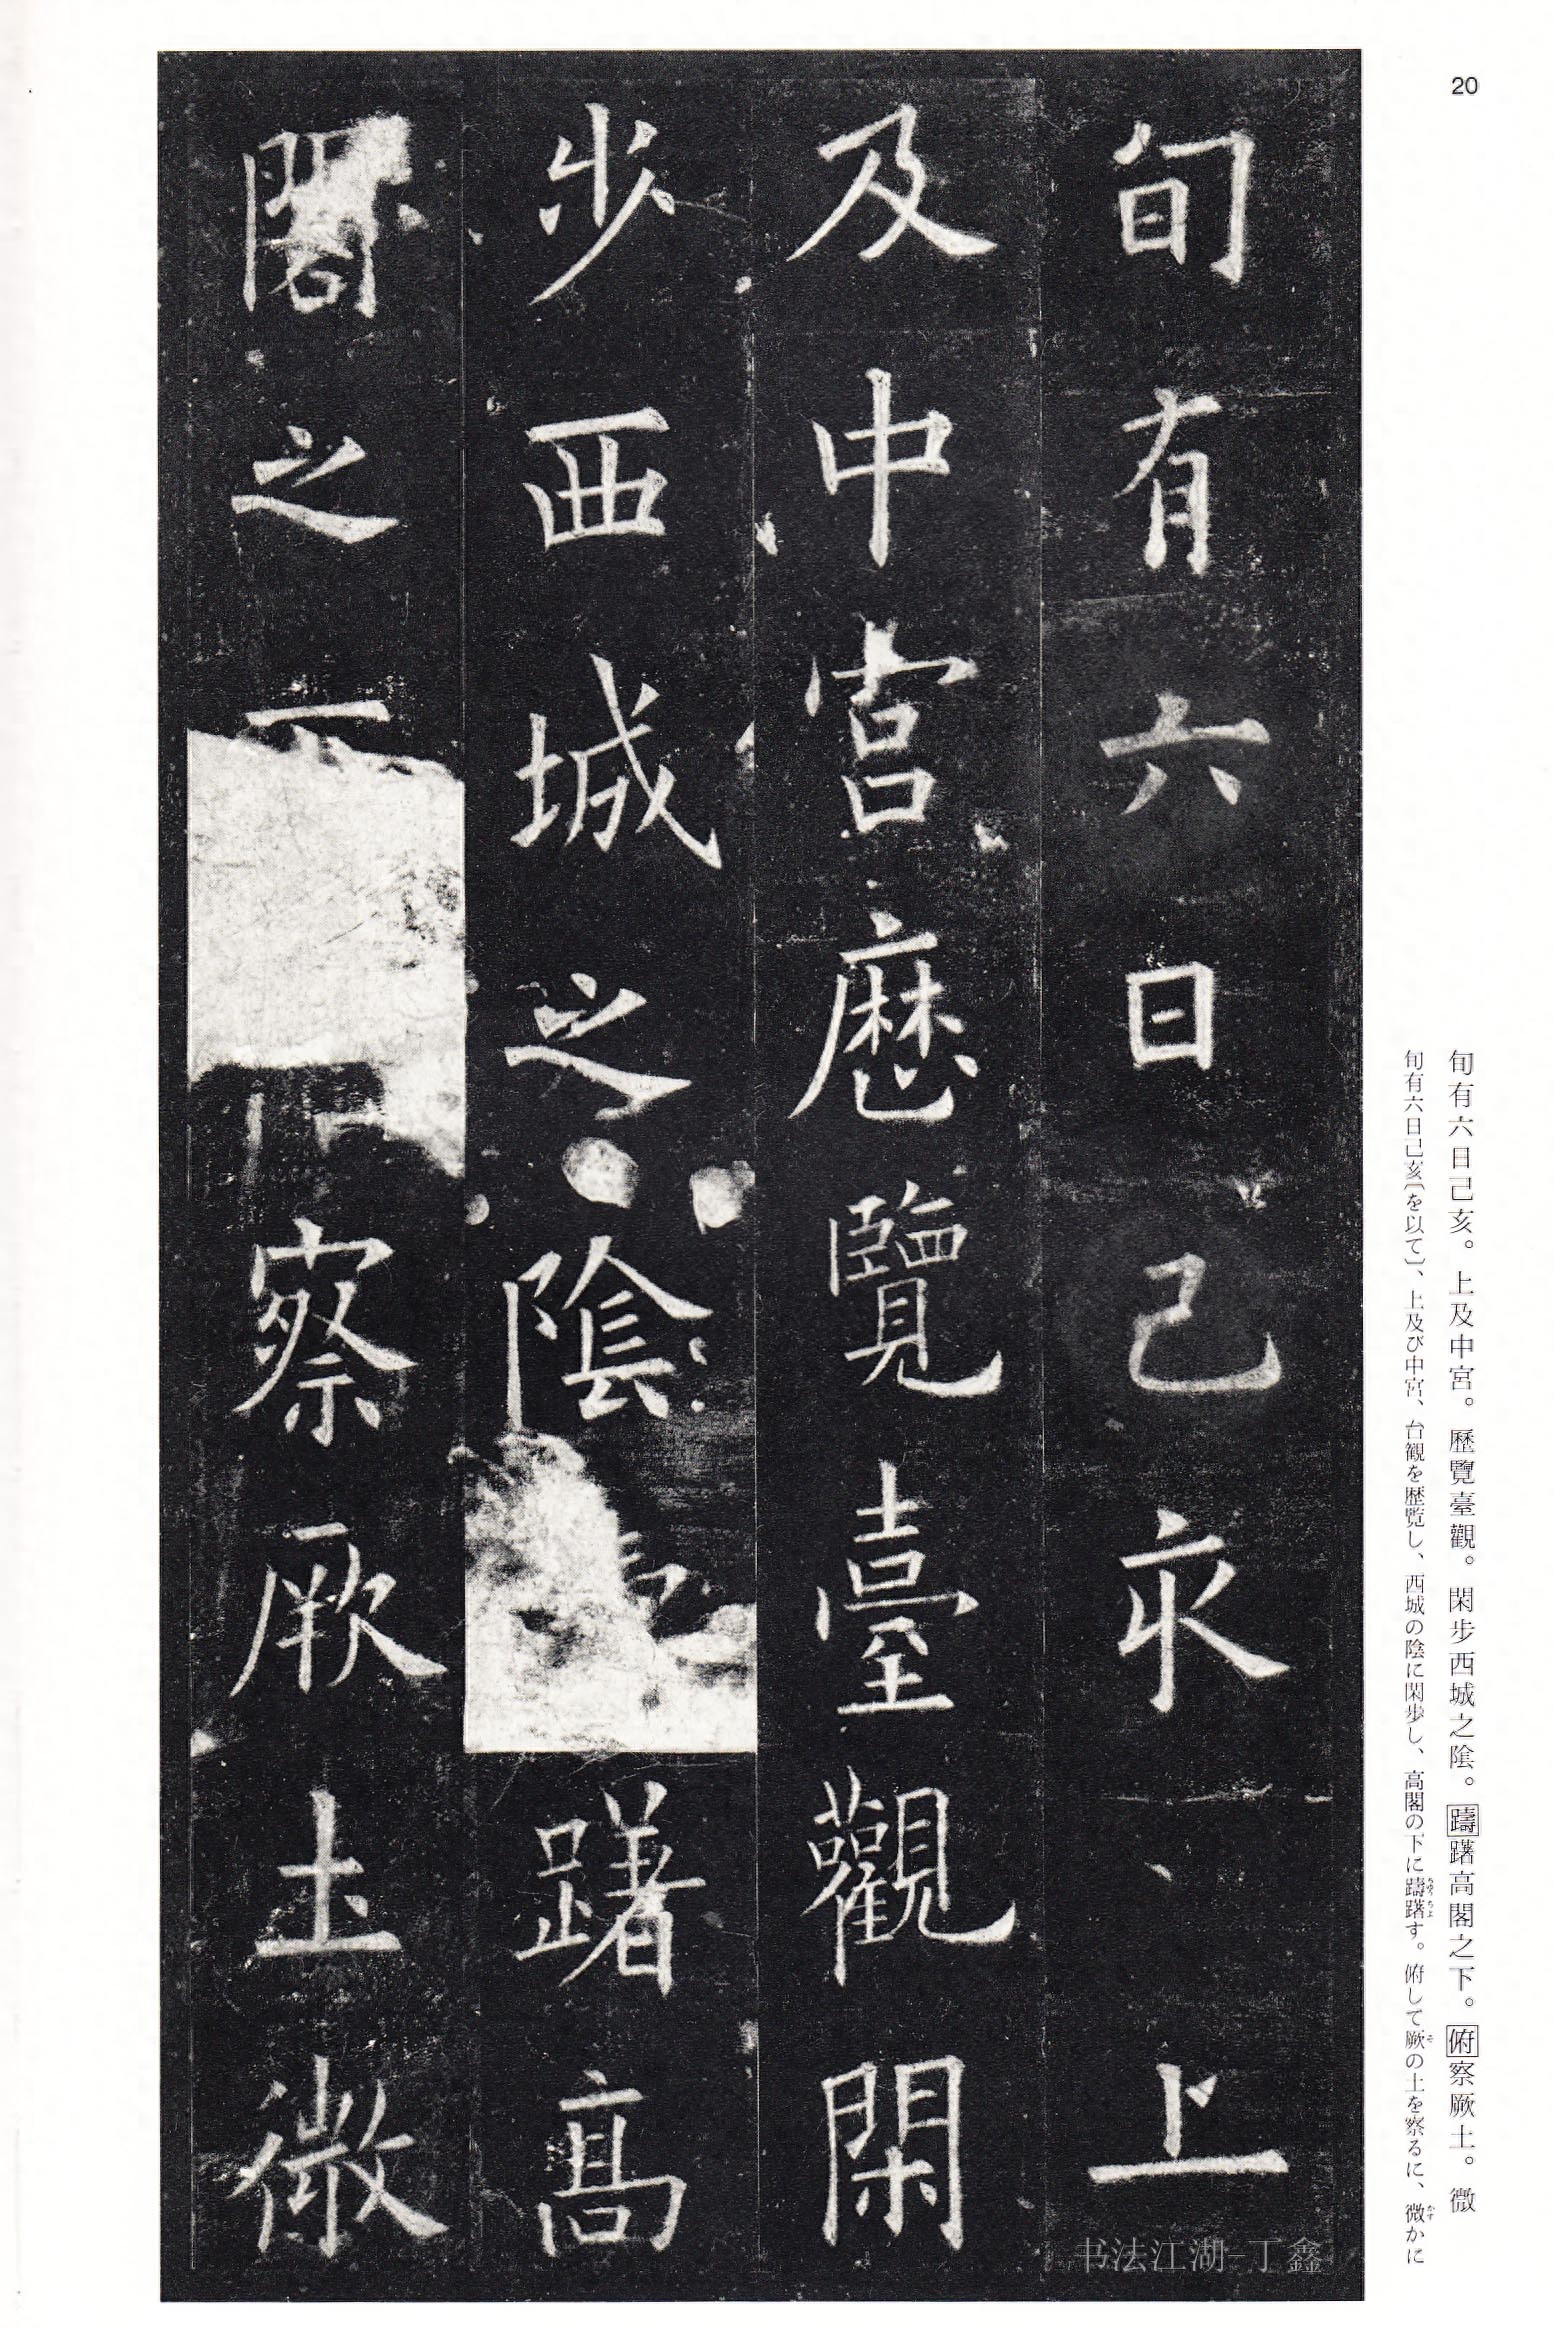 20
旬有六日己亥上
及中宮歷覽臺觀閑
步西城之陰躇高
閣之下察厥土微
旬有六日己亥。上及中宮。歷覽臺觀。閑步西城之陰。躊躇高閣之下。俯察厥土。微
旬有六日己亥〔を以て〕、上及び中宮、台観を歴覧し、西城の陰に閑歩し、高閣の下に躊躇す。俯して厥の土を察るに、微かに
ちゅうちょ
そ
かす
书法江湖-丁鑫